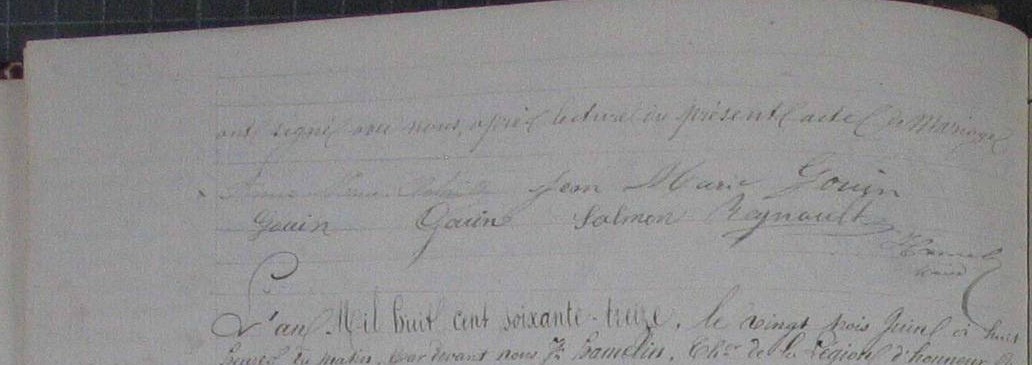 ont signé avec nous, après lecture du présent acte de Mariage
Anne Marie Jean Marie Gouin
Gouin Gouin Salmon Reynault
Hamelin
maire
L'an Mil huit cent soixante-treize, le vingt trois Juin à huit
heures du matin, Par devant nous Fs hamelin, Cher de la Légion d'honneur